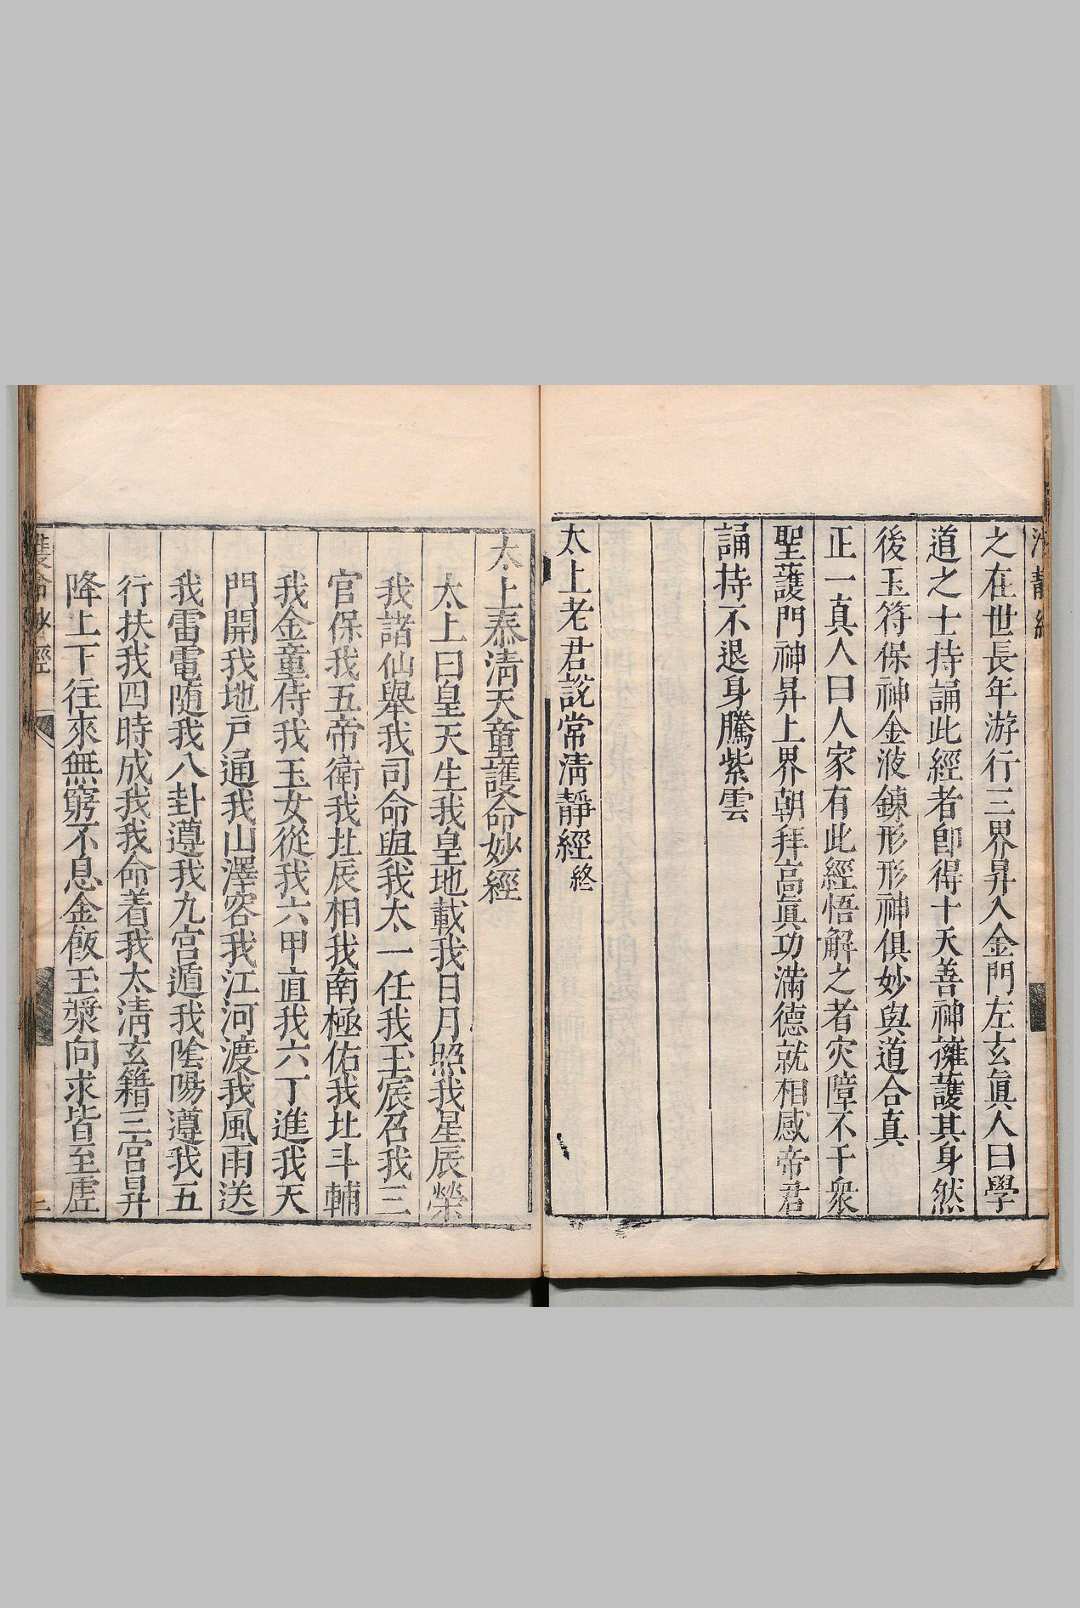 清靜經
之在世長年游行三界昇入金門左玄眞人曰學
道之士持誦此經者卽得十天善神擁護其身然
後玉符保神金液鍊形形神俱妙與道合真
正一真人曰人家有此經悟解之者灾障不干衆
聖護門神昇上界朝拜高眞功滿德就相感帝君
誦持不退身騰紫雲
太上老君說常淸靜經終
太上泰淸天童護命妙經
太上曰皇天生我皇地載我日月照我星辰榮
我諸仙舉我司命與我太一任我玉宸召我三
官保我五帝衛我北辰相我南極佑我北斗輔
我金童侍我玉女從我六甲直我六丁進我天
門開我地戸通我山澤容我江河渡我風雨送
我雷電隨我八卦遵我九宫遁我陰陽遵我五
行扶我四時成我我命着我太淸玄籍三宮昇
降上下往來無窮不息金飯玉漿向求皆至虛
護命妙經